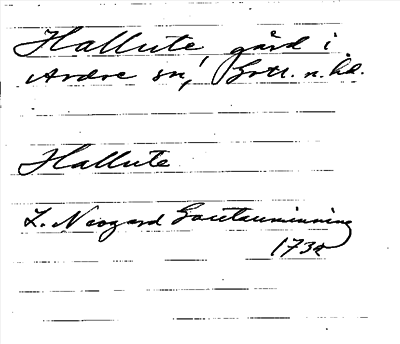 Hallute gård i
Ardre sn, Gotl. n. hd.
Hallute
L. Neogard Gautauminning
1732